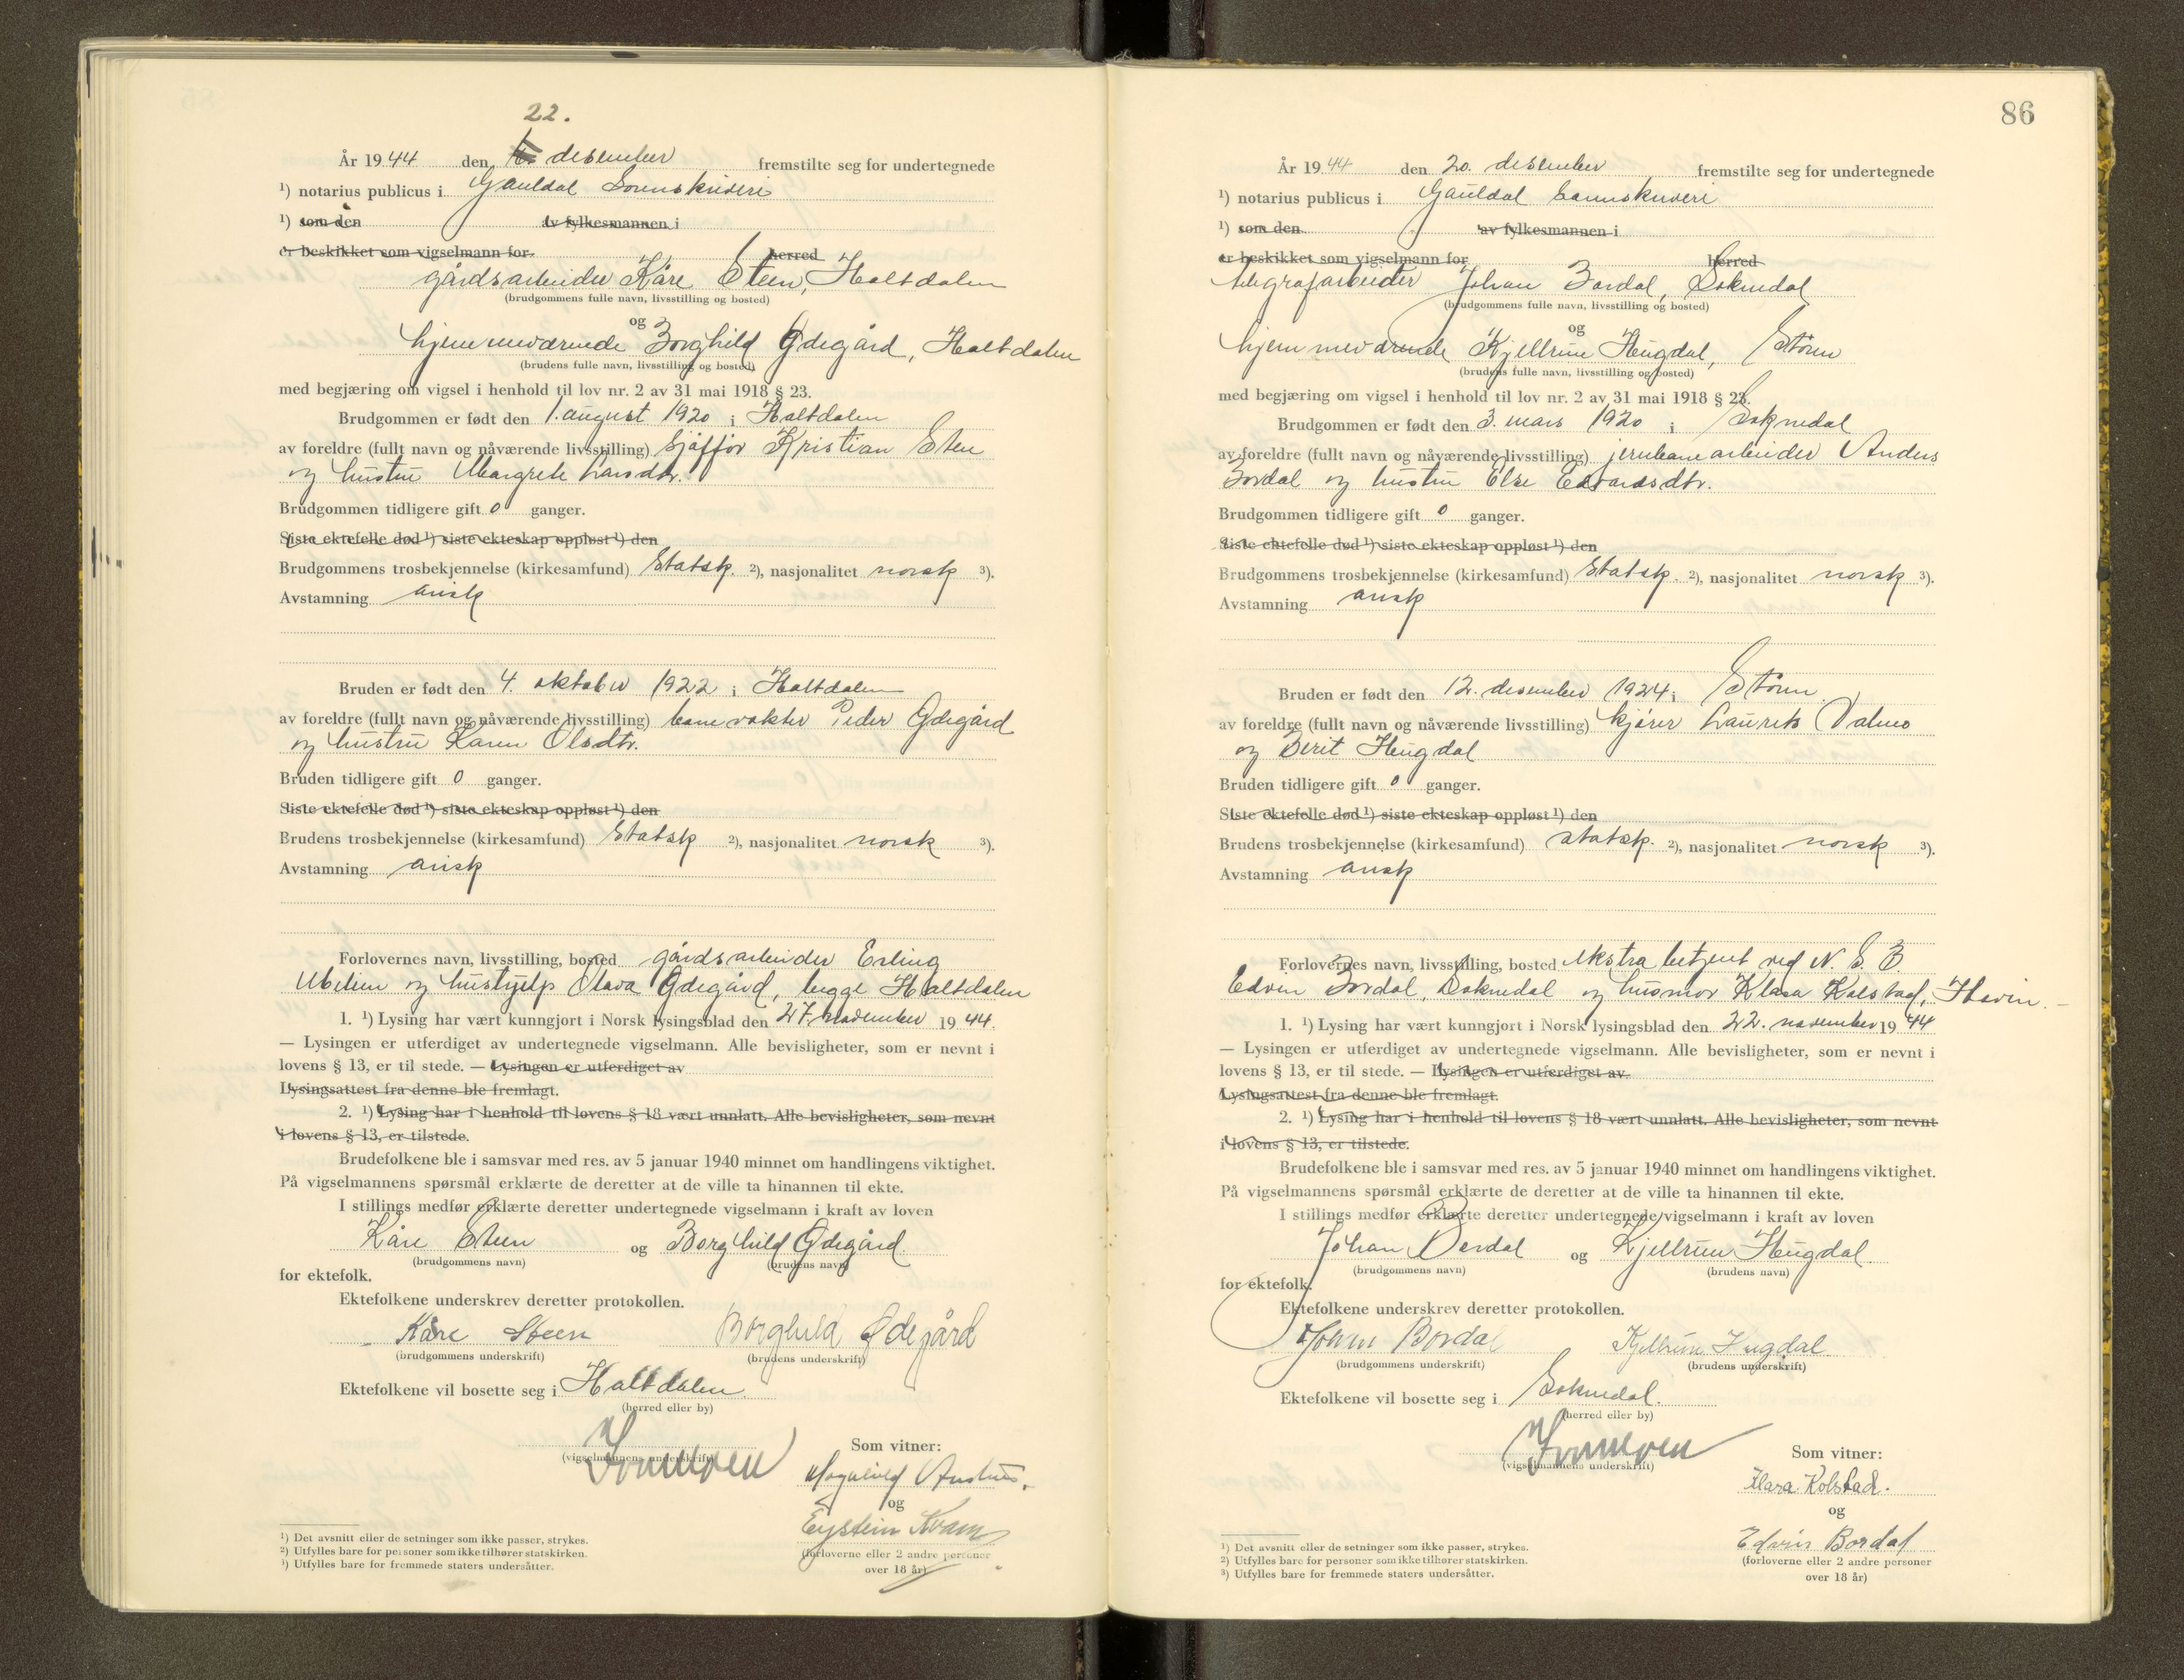 22.
År 1944 den desember fremstilte seg for undertegnede
¹) notarius publicus i Gauldal Sorenskriveri
¹) som den av fylkesmannen i
er beskikket som vigselmann for herred
gårdsarbeider Kåre Steen, Haltdalen
(brudgommens fulle navn, livsstilling og bosted)
og
hjemmeværende Borghild Ødegård, Haltdalen
(brudens fulle navn, livsstilling og bosted)
med begjæring om vigsel i henhold til lov nr. 2 av 31 mai 1918 § 23.
Brudgommen er født den 1. august 1920 i Haltdalen
av foreldre (fullt navn og nåværende livsstilling) sjåfør Kristian Steen
og hustru Margrete Larsdtr.
Brudgommen tidligere gift 0 ganger.
Siste ektefelle død ¹) siste ekteskap oppløst ¹) den
Brudgommens trosbekjennelse (kirkesamfund) Statsk. ²), nasjonalitet norsk ³).
Avstamning arisk
Bruden er født den 4. oktober 1922 i Haltdalen
av foreldre (fullt navn og nåværende livsstilling) banevokter Peder Ødegård
og hustru Karen Olsdtr.
Bruden tidligere gift 0 ganger.
Siste ektefelle død ¹) siste ekteskap oppløst ¹) den
Brudens trosbekjennelse (kirkesamfund) Statsk ²), nasjonalitet norsk ³).
Avstamning arisk
Forlovernes navn, livsstilling, bosted gårdsarbeider Erling
og hushjelp Olava Ødegård, begge Haltdalen
1. ¹) Lysing har vært kunngjort i Norsk lysingsblad den 27. november 1944.
— Lysingen er utferdiget av undertegnede vigselmann. Alle bevisligheter, som er nevnt i
lovens § 13, er til stede. — Lysingen er utferdiget av
Lysingsattest fra denne ble fremlagt.
2. ¹) Lysing har i henhold til lovens § 18 vært unnlatt. Alle bevisligheter, som nevnt
i lovens § 13, er tilstede.
Brudefolkene ble i samsvar med res. av 5 januar 1940 minnet om handlingens viktighet.
På vigselmannens spørsmål erklærte de deretter at de ville ta hinannen til ekte.
I stillings medfør erklærte deretter undertegnede vigselmann i kraft av loven
Kåre Steen og Borghild Ødegård
(brudgommens navn) (brudens navn)
for ektefolk.
Ektefolkene underskrev deretter protokollen.
Kåre Steen Borghild Ødegård
(brudgommens underskrift) (brudens underskrift)
Ektefolkene vil bosette seg i Haltdalen
(herred eller by)
Som vitner:
(vigselmannens underskrift)
og
Eystein Kvam
(forloverne eller 2 andre personer
over 18 år)
¹) Det avsnitt eller de setninger som ikke passer, strykes.
²) Utfylles bare for personer som ikke tilhører statskirken.
³) Utfylles bare for fremmede staters undersåtter.
86
År 1944 den 20. desember fremstilte seg for undertegnede
¹) notarius publicus i Gauldal Sorenskriveri
¹) som den av fylkesmannen i
er beskikket som vigselmann for herred
telegrafarbeider Johan Bordal, Soknedal
(brudgommens fulle navn, livsstilling og bosted)
og
hjemmeværende Kjellrun Heugdal, Støren
(brudens fulle navn, livsstilling og bosted)
med begjæring om vigsel i henhold til lov nr. 2 av 31 mai 1918 § 23.
Brudgommen er født den 3. mars 1920 i Soknedal
av foreldre (fullt navn og nåværende livsstilling) jernbanearbeider Anders
Bordal og hustru Else Edvardsdtr.
Brudgommen tidligere gift 0 ganger.
Siste ektefelle død ¹) siste ekteskap oppløst ¹) den
Brudgommens trosbekjennelse (kirkesamfund) Statsk. ²), nasjonalitet norsk ³).
Avstamning arisk
Bruden er født den 12. desember 1924 i Støren
av foreldre (fullt navn og nåværende livsstilling) kjører Laurits Valmo
og Berit Heugdal
Bruden tidligere gift 0 ganger.
Siste ektefelle død ¹) siste ekteskap oppløst ¹) den
Brudens trosbekjennelse (kirkesamfund) statsk. ²), nasjonalitet norsk ³).
Avstamning arisk
Forlovernes navn, livsstilling, bosted ekstrabetjent ved N. S. B.
Edvin Bordal, Soknedal og husmor Klara Kolstad,
1. ¹) Lysing har vært kunngjort i Norsk lysingsblad den 22. november 1944
— Lysingen er utferdiget av undertegnede vigselmann. Alle bevisligheter, som er nevnt i
lovens § 13, er til stede. — Lysingen er utferdiget av.
Lysingsattest fra denne ble fremlagt.
2. ¹) Lysing har i henhold til lovens § 18 vært unnlatt. Alle bevisligheter, som nevnt
i lovens § 13, er tilstede.
Brudefolkene ble i samsvar med res. av 5 januar 1940 minnet om handlingens viktighet.
På vigselmannens spørsmål erklærte de deretter at de ville ta hinannen til ekte.
I stillings medfør erklærte deretter undertegnede vigselmann i kraft av loven
Johan Bordal og Kjellrun Heugdal
(brudgommens navn) (brudens navn)
for ektefolk.
Ektefolkene underskrev deretter protokollen.
Johan Bordal Kjellrun Heugdal
(brudgommens underskrift) (brudens underskrift)
Ektefolkene vil bosette seg i Soknedal.
(herred eller by)
Som vitner:
(vigselmannens underskrift)
Klara Kolstad.
og
Edvin Bordal
(forloverne eller 2 andre personer
over 18 år)
¹) Det avsnitt eller de setninger som ikke passer, strykes.
²) Utfylles bare for personer som ikke tilhører statskirken.
³) Utfylles bare for fremmede staters undersåtter.